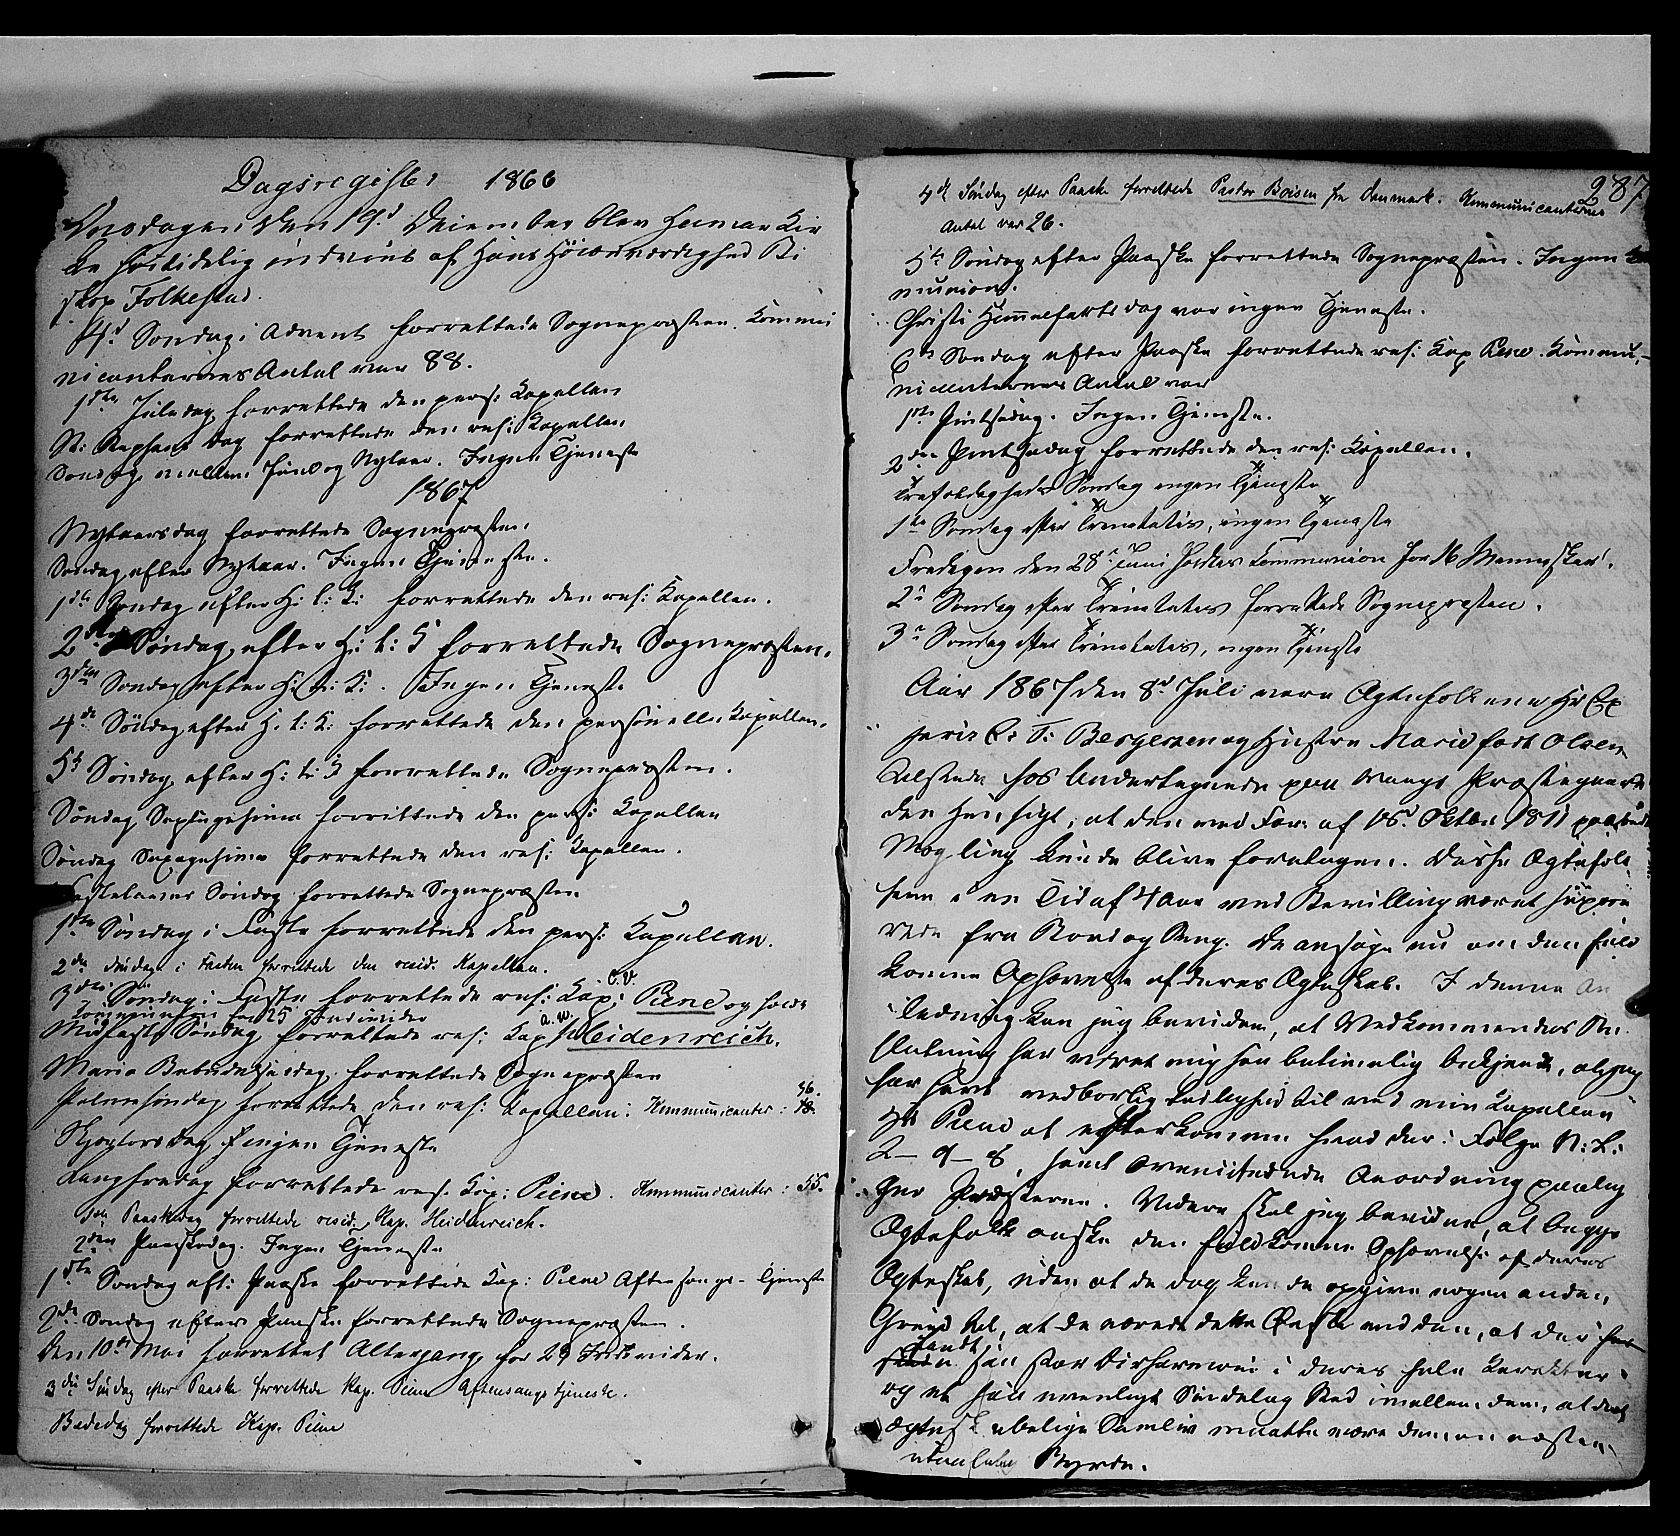 Dagsregister 1866
Onsdagen den 19d December blev Hamar Kir
ke høitidelig indviet af Hans Høiærværdighed Bi
skop Folkestad.
4d Søndag i Advent forrettede Sognepræsten. Kommu
nicanternes Antal var 88.
1ste Juledag forrettede den pers: Kapellan
St: Stephans Dag forrettede den res: Kapellan.
Søndag mellem Juul og Nytaar. Ingen Tjeneste
1867
Nytaarsdag forrettede Sognepræsten.
Søndag efter Nytaar. Ingen Tjeneste.
1ste Søndag efter H: t: K: forrettede den res: Kapellan.
2den Søndag efter H: t: 3 forrettede Sognepræsten.
3den Søndag efter H: t: K: . Ingen Tjeneste
4de Søndag efter H. t: K: forrettede den personelle Kapellan.
5te Søndag efter H: t: 3 forrettede Sognepræsten.
Søndag Septuagesima forrettede den pers: Kapellan
Søndag Sexagesima forrettede den res: Kapellan.
Fastelavns Søndag forrettede Sognepræsten
1ste Søndag i Faste forrettede den pers: Kapellan.
2den Søndag i Fasten forrettede den resid. Kapellan.
3die Søndag i Faste forrettede res: Kap: C.V. Piene og holdt
Communion for 25 Individer
Midfaste Søndag forrettede res: Kap: a.w. Heidenreich.
Maria Bebudelsesdag forrettede Sognepræsten
Palmesøndag forrettede den res: Kapellan: Kommunicanter: 46.
Skjærtorsdag Ingen Tjeneste
Langfredag forrettede res. Kap: Piene. Kommunicanter: 55.
1ste Paaskedag forrettede resid. Kap. Heidenreich.
2den Paaskedag. Ingen Tjeneste
1ste Søndag eft: Paaske forrettede Kap: Piene Aftensangs-Tjeneste
2den Søndag efter Paaske forrettede Sognepræsten.
Den 10de Mai forrettet Altergang for 29 Individer.
3die Søndag efter Paaske forrettede Kap. Piene Aftensangstjeneste.
Bededag forrettede Kap. Piene
287
4de Søndag efter Paaske forrettede Pastor Boisen fra Danmark. Kommunicanternes
Antal var 26.
5te Søndag efter Paaske forrettede Sognepræsten. Ingen Kom
munion.
Christi Himmelfartsdag var ingen Tjeneste.
6te Søndag efter Paaske forrettede res: Kap Piene. Kommu-
nicanternes Antal var
1ste Pintsedag. Ingen Tjeneste.
2den Pintsedag forrettede den res: Kapellan.
Trefoldigheds Søndag ingen Tjeneste
1ste Søndag efter Trinitatis, ingen Tjeneste
Fredagen den 28de Juni holdtes Communion for 16 Mennesker.
2n Søndag efter Trinitatis forrettede Sognepræsten.
3n Søndag efter Trinitatis, ingen Tjeneste
Aar 1867 den 8d Juli vare Ægtefolkene Hr Ex
jurist C: T: Bergersen og Hustru Marie født Olsen
tilstede hos Undertegnede paa Vangs Præstegaard i
den Hensigt, at den ved For: af 18d Oktbr 1811 paabudte
Mægling kunde blive foretagen. Disse Ægtefolk
have i en Tid af 4 Aar ved Bevilling været sepere
rede fra Bord og Seng. De ansøge nu om den fuld
komne Ophævelse af deres Ægteskab. I denne An
ledning kan jeg bevidne, at Vedkommendes Be
slutning har været mig saa betimelig bekjendt, at jeg
har havt vedbørlig Leilighed til ved min Kapellan
Hr Piene at efterkomme hvad der i Følge N: L:
2 - 9 - 8, samt ovencitterede Anordning paalig
ger Præsterne. Videre skal jeg bevidne, at begge
Ægtefolk ønske den fuldkomne Ophævelse af deres
Ægteskab, uden at de dog kunde opgive nogen anden
Grund til, at de nærede dette Ønske end den, at der har
fundet
sted en saa stor Disharmoni i deres hele Karakter
og et saa uvenligt Sindelag Sted imellem dem, at det
ægteskabelige Samliv maatte være dem en næsten
utaalelig Byrde.